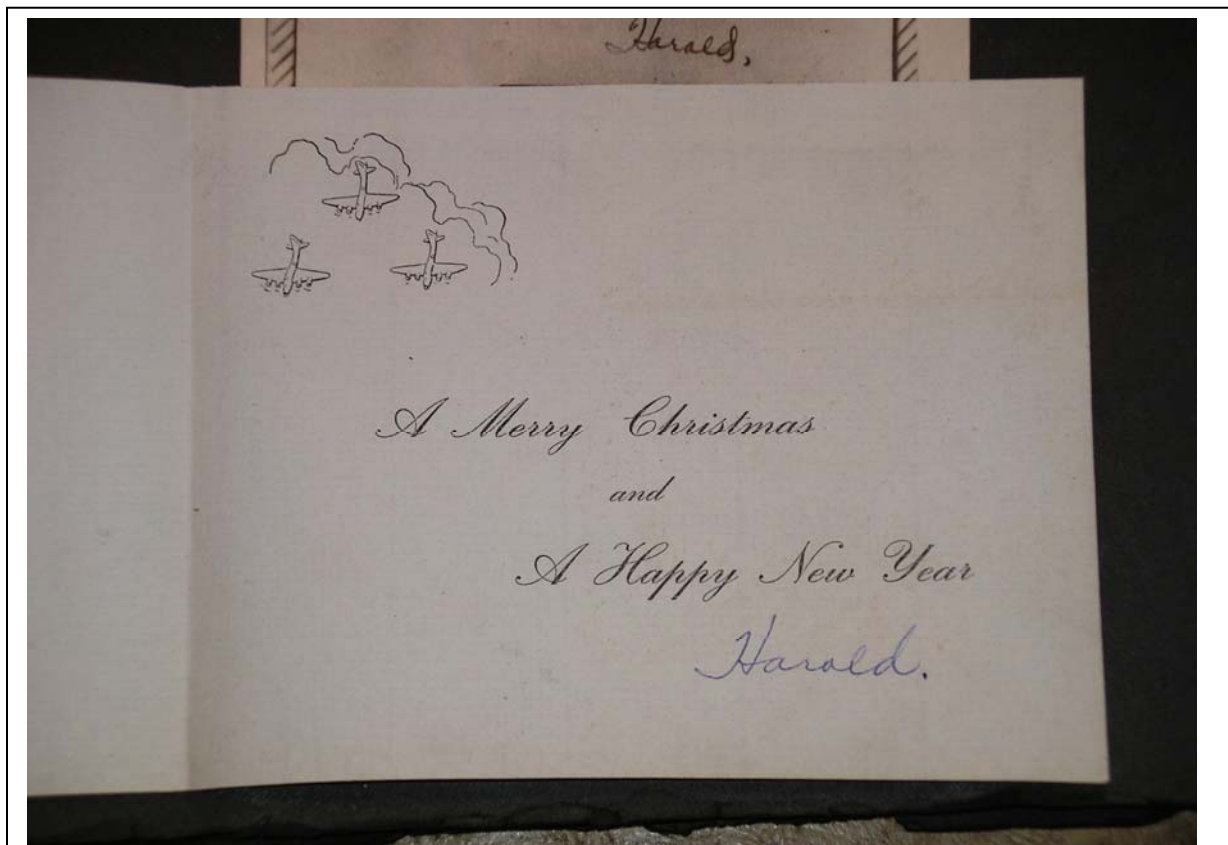 Harold,
A Merry Christmas
and
A Happy New Year
Harold.